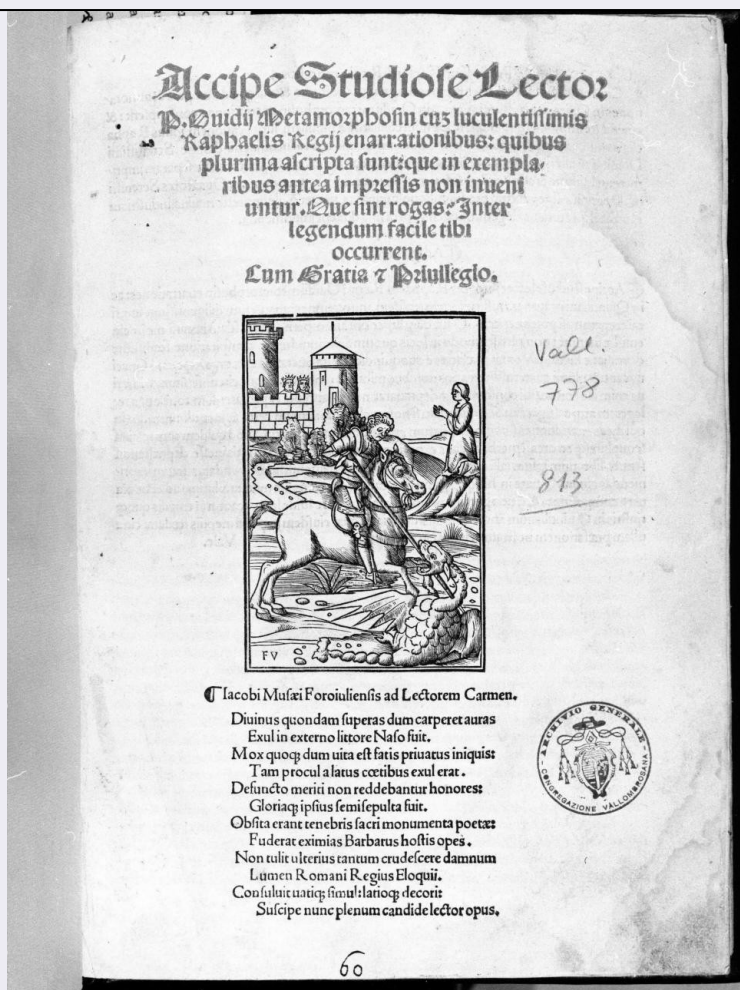 Accipe Studiose Lector
P. Ouidij Metamorphosin cuz luculentissimis
Raphaelis Regij enarrationibus: quibus
plurima ascripta sunt: que in exempla-
ribus antea impressis non inueni
untur. Que sint rogas: Inter
legendum facile tibi
occurrent.
Cum Gratia ⁊ Priuilegio.
Vall
778
813
FV
¶ Iacobi Musæi Foroiuliensis ad Lectorem Carmen.
Diuinus quondam superas dum carperet auras
Exul in externo littore Naso fuit.
Mox quoq; dum uita est fatis priuatus iniquis:
Tam procul a latus cœtibus exul erat.
Defuncto meriti non reddebantur honores:
Gloriaq; ipsius semisepulta fuit.
Obsita erant tenebris sacri monumenta poetæ:
Fuderat eximias Barbarus hostis opes.
Non tulit ulterius tantum crudescere damnum
Lumen Romani Regius Eloquii.
Consuluit uatiq; simul: latioq; decori:
Suscipe nunc plenum candide lector opus.
ARCHIVIO GENERALE
CONGREGAZIONE VALLOMBROSANA
60